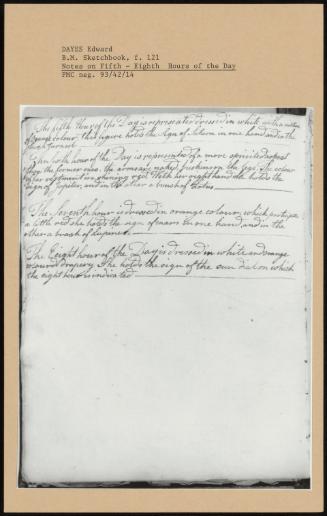 DAYES Edward
B.M. Sketchbook, f. 121
Notes on Fifth - Eighth Hours of the Day
PMC neg. 93/42/14
The fifth Hour of the Day is represented dressed in white with a
of orange colour. This figure holds the sign of Saturn in one hand and in the
The sixth hour of the Day is represented of a more spirited aspect
than the former ones, the arms are naked, the
of her vestment is a With her right hand she holds the
sign of Jupiter, and in the other a bunch of Lotus
The Seventh hour is dressed in orange colour, which
a little red she holds the sign of mars in one hand, and in the
other a bunch of Lupines.
The Eight hour of the Day is dressed in white and orange
drapery. She holds the sign of the sun dial on which
the eight hour is indicated